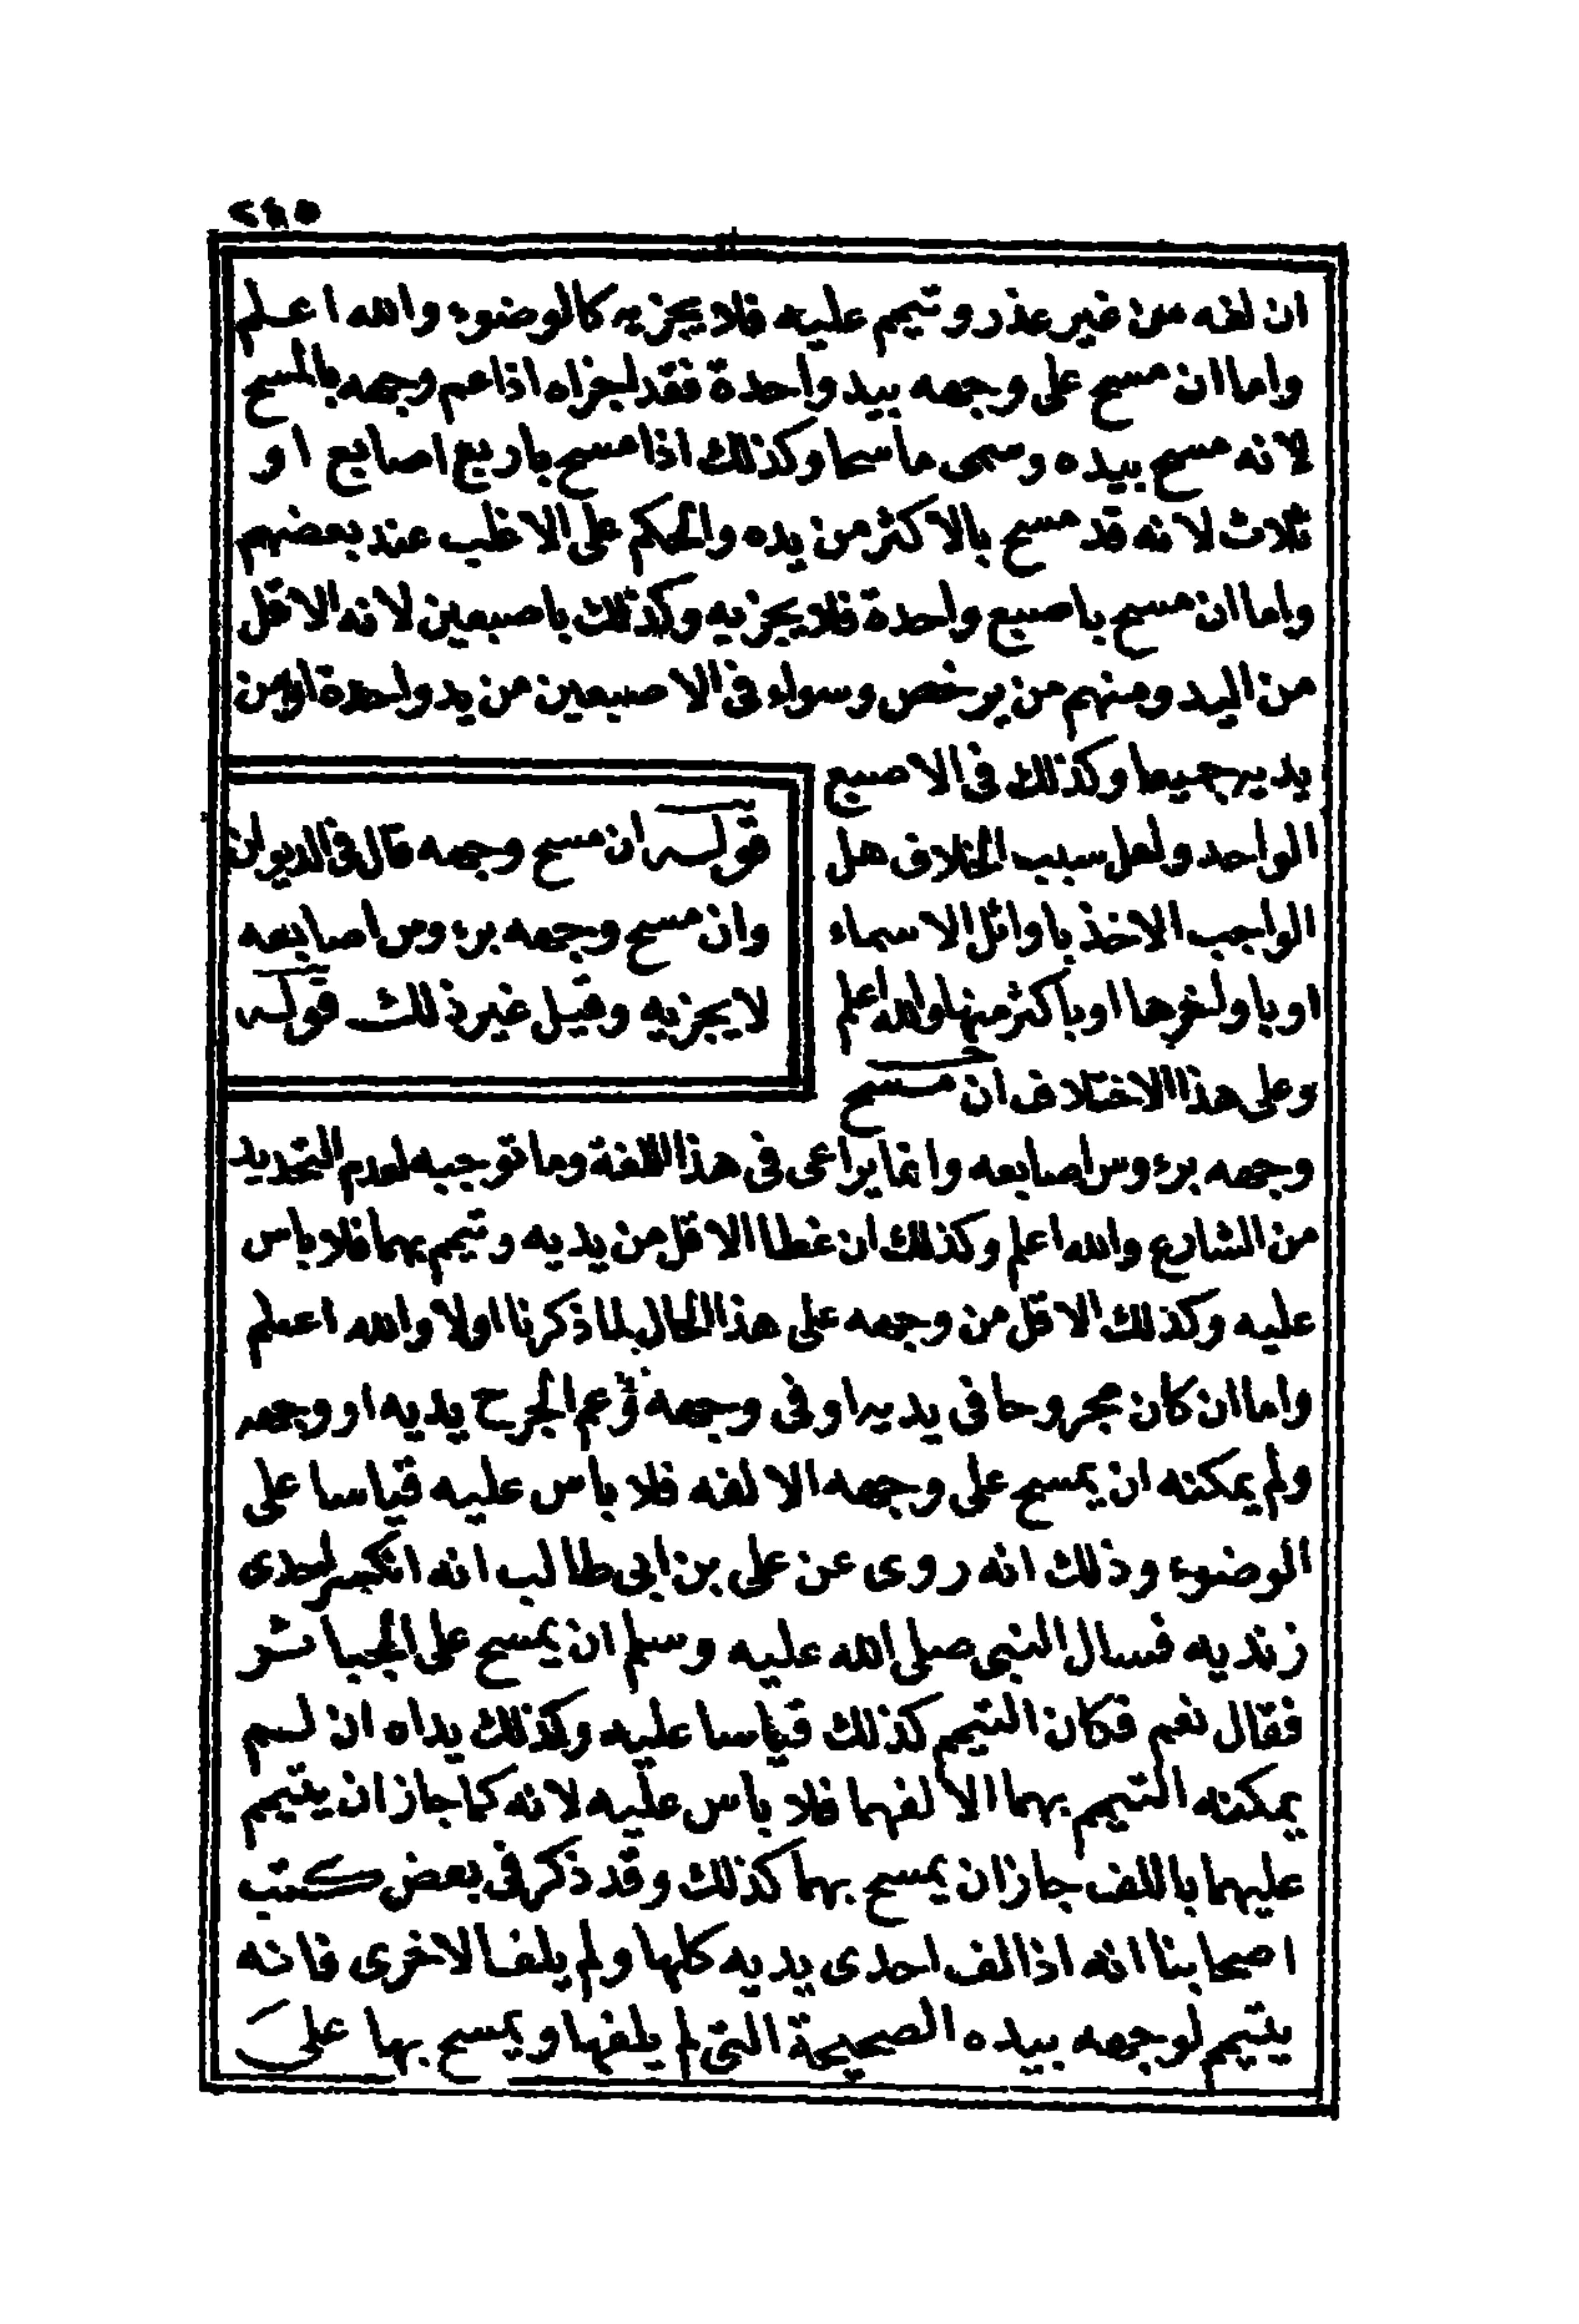 ٢٩٥
ان لفه من غير عذر وتيمم عليه فلا يجزيه كالوضوء والله اعلم
واما ان مسح على وجهه بيد واحدة فقد اجزاه اذا عم وجهه بالمسح
لانه مسح بيده وسمى ماسحا وكذلك اذا مسح باربع اصابع او
ثلاث لانه قد مسح بالاكثر من يده والحكم على الاغلب عند بعضهم
واما ان مسح باصبع واحدة فلا يجزيه وكذلك باصبعين لانه الاقل
من اليد ومنهم من يرخص وسواء في الاصبعين من يد واحدة او من
يديه جميعا وكذلك في الاصبع
الواحد ولعل سبب الخلاف هل
الواجب الاخذ باوائل الاسماء
او باواخرها او باكثر منها والله اعلم
وعلى هذا الاختلاف ان مسح
قوله ان مسح وجهه قال في الديوان
وان مسح وجهه برءوس اصابعه
لا يجزيه وقيل غير ذلك قوله
وجهه برءوس اصابعه وانما يراعى في هذا اللغة وما توجبه لعدم التحديد
من الشارع والله اعلم وكذلك ان غطا الاقل من يديه وتيمم بهما فلا باس
عليه وكذلك الاقل من وجهه على هذا الحال لما ذكرنا اولا والله اعلم
واما ان كان مجروحا في يديه او في وجهه وعم الجرح يديه او وجهه
ولم يمكنه ان يمسح على وجهه الا لفه فلا باس عليه قياسا على
الوضوء وذلك انه روى عن على بن ابى طالب انه انكسر احدى
زنديه فسال النبى صلى الله عليه وسلم ان يمسح على الجبائر
فقال نعم فكان التيمم كذلك قياسا عليه وكذلك يداه ان لم
يمكنه التيمم بهما الا لفهما فلا باس عليه لانه كما جاز ان يتيمم
عليهما باللف جاز ان يمسح بهما كذلك وقد ذكر في بعض كتب
اصحابنا انه اذا لف احدى يديه كلها ولم يلف الاخرى فانه
يتيمم لوجهه بيده الصحيحة التى لم يلفها ويمسح بها على